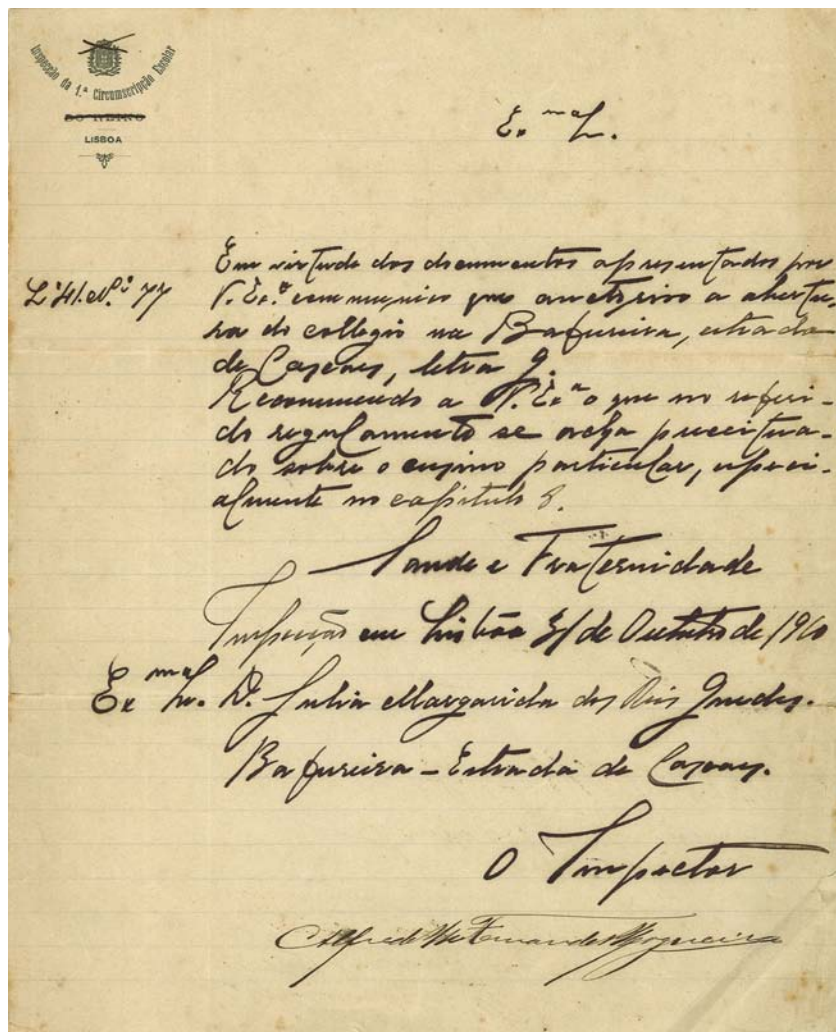 Inspecção da 1.ª Circumscripção Escolar
DO REINO
LISBOA
Ex.ma Sr.
Em virtude dos documentos apresentados por
L.º 41. Nº 77
V. Ex.ª communico que auctoriso a abertu-
ra do collegio na Bafureira, estrada
de Cascaes, letra G.
Recommendo a V. Ex.ª o que no referi-
do regulamento se acha preceitua-
do sobre o ensino particular, especi-
almente no capitulo 8.
Saude e Fraternidade
Inspecção em Lisbôa 31 de Outubro de 1910
Ex.ma Sr. D. Julia Margarida dos Reis Guedes.
Bafureira - Estrada de Cascaes.
O Inspector
Alfredo Fernandes Nogueira